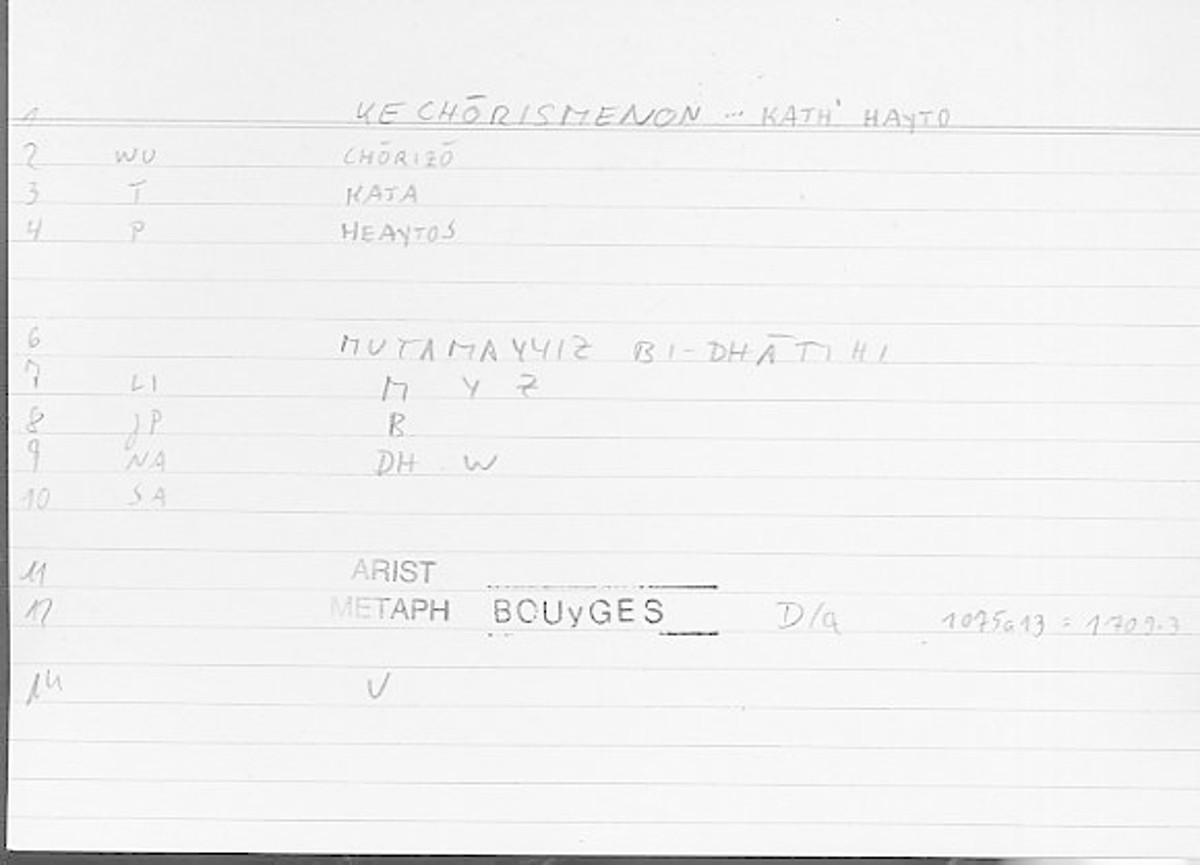 1 KECHŌRISMENON ... KATH' HAYTO
2 WU CHŌRIZŌ
3 T KATA
4 P HEAYTOS
6 MUTAMAYYIZ BI-DHĀTIHI
7 LI M Y Z
8 JP B
9 NA DH W
10 SA
11 ARIST
12 METAPH BOUyGES D/a 1075a13 = 1709.3
14 V